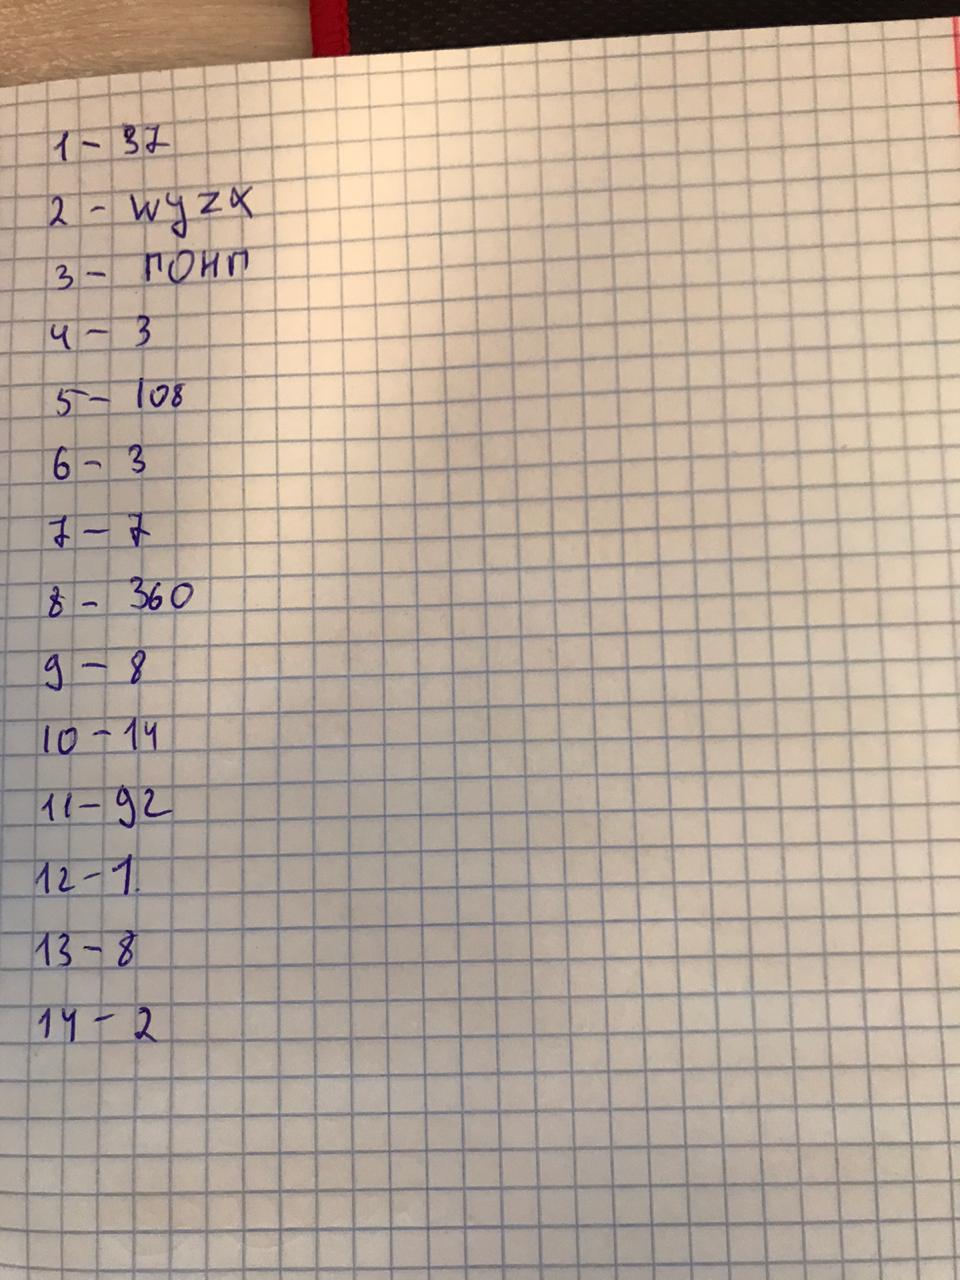 1 - 37
2 - wyzx
3 - ПОНП
4 - 3
5 - 108
6 - 3
7 - 7
8 - 360
9 - 8
10 - 14
11 - 92
12 - 1.
13 - 8
14 - 2